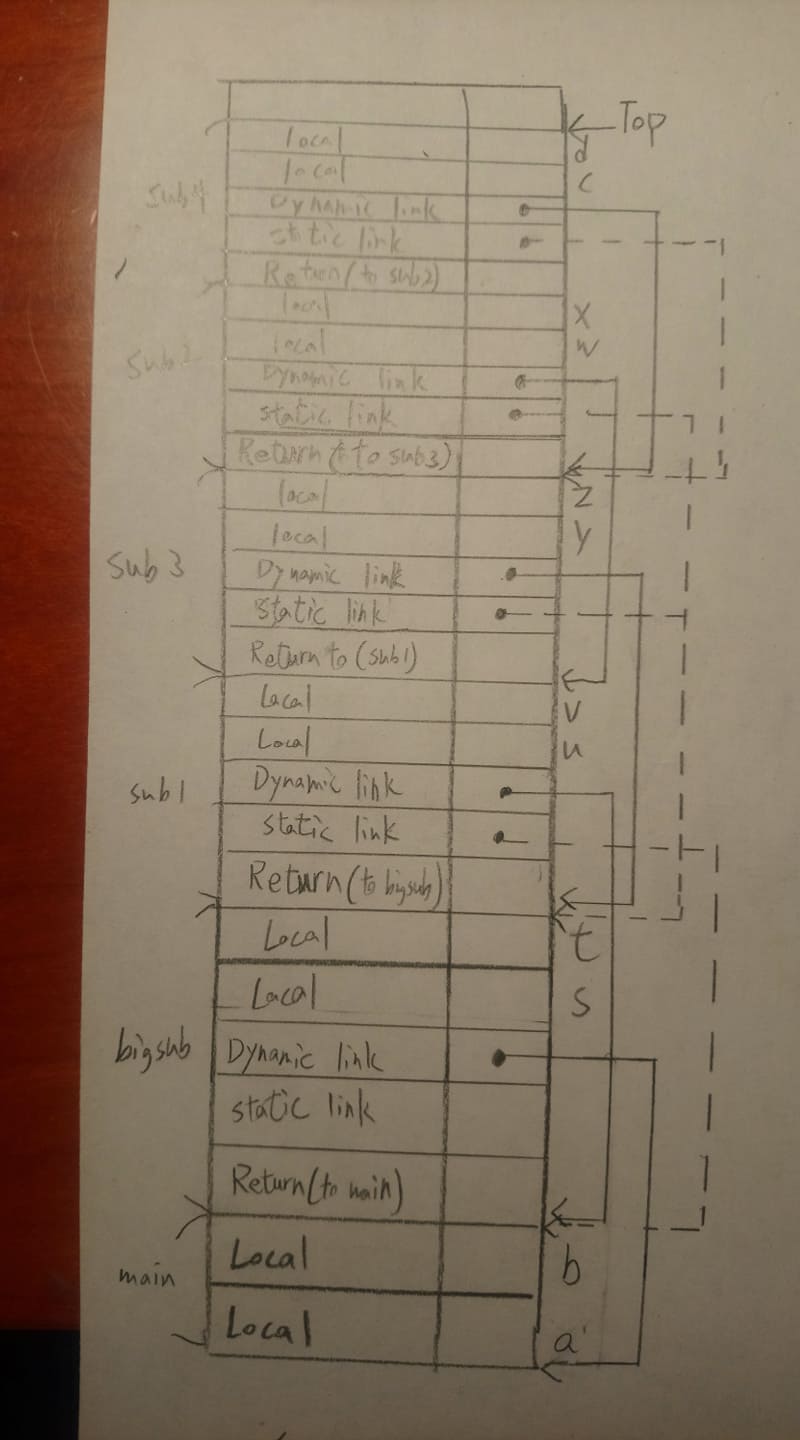 Top
local
d
local
c
sub4
Dynamic link
static link
Return(to sub2)
local
x
local
w
sub2
Dynamic link
static link
Return(to sub3)
local
z
local
y
sub3
Dynamic link
static link
Return to (sub1)
Local
v
Local
u
sub1
Dynamic link
static link
Return(to bigsub)
Local
t
Local
s
bigsub
Dynamic link
static link
Return(to main)
Local
b
main
Local
a